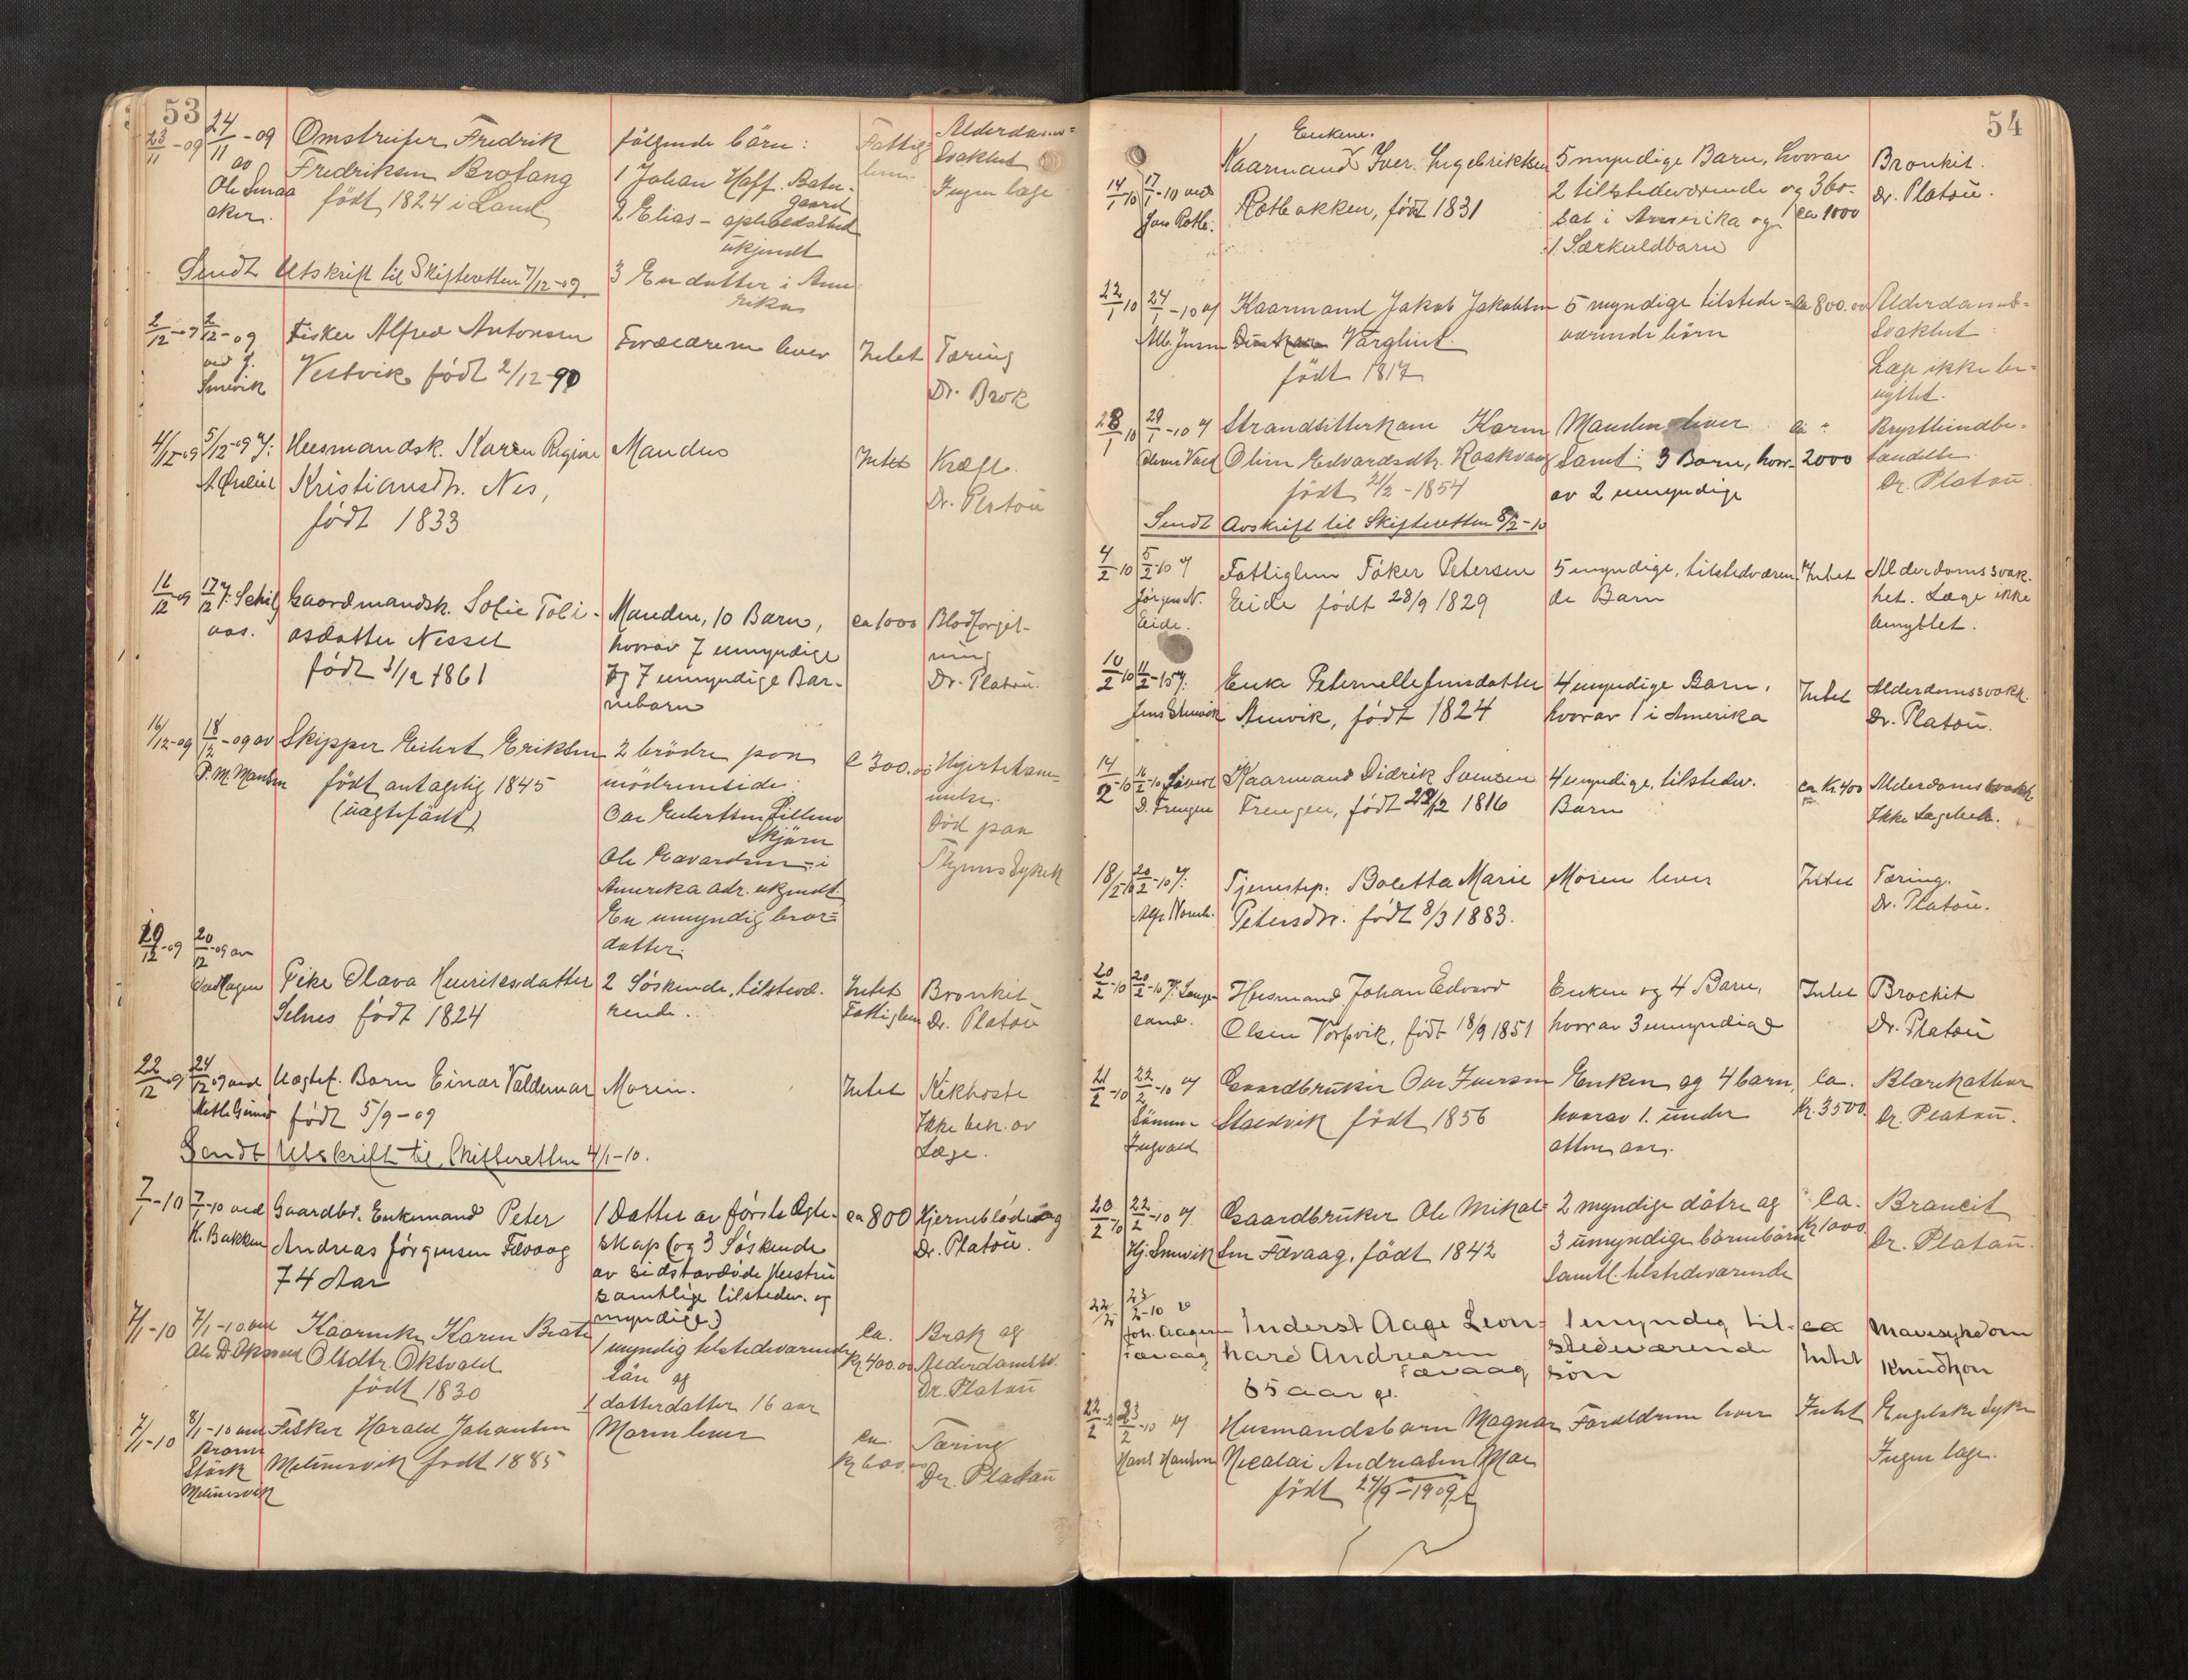 53
23/11 -09 24/11 -09 Omstreifer Fredrik følgende børn: Fattig Alderdoms=
av Fredriksen Brotang 1 Johan Hoff. Batn- lem. svakhet
Ole Smaa født 1824 i Land gaard Ingen læge
aker. 2 Elias - opholdssted
ukjendt
Sendt Utskrift til Skifteretten 7/12-09 3 En datter i Ame
rika
2/12-09 2/12-09 Fisker Alfred Antonsen Forældrene lever Intet Tæring
ved J. Vestvik født 2/12-90 Dr. Brok
Smevik
4/12-09 5/12-09 Husmandsk. Karen Regine Manden Intet Kræft.
Kristiansdtr. Nes, Dr. Platou
født 1833
16/12-09 17/12 Gaardmandsk. Sofie Toli- Manden, 10 Barn, ca 1000 Blodforgift-
aas. asdatter Nesset hvorav 7 umyndige ning
født 3/12 1861 og 7 umyndige Bar- Dr. Platou.
nebarn
16/12-09 18/12-09 av Skipper Eilert Eriksen 2 brødre paa 300.00 Hjertelam-
P. M. Mansen født antagelig 1845 mødrenside melse.
(uægtefødt) Død paa
Skjørn
Ole Edvardsen i
Amerika adr. ukjendt
En umyndig bror=
datter.
20/12-09 20/12-09 av
Pike Olava Henriksdatter 2 Søskende, tilstedvæ- Intet Bronkit
Selnes født 1824 rende. Fattiglem Dr. Platou
22/12-09 24/12-09 ved Uægtef. Barn Einar Valdemar Moren. Intet Kikhoste
født 5/9-09 Ikke beh. av
Læge.
Sendt Utskrift til Skifteretten 4/1-10.
7/1-10 7/1-10 ved Gaardbr. Enkemand Peter 1 Datter av første Ægte- ca 800 Hjerneblødning
K. Bakken Andreas Jørgensen Fævaag skap (og 3 Søskende Dr. Platou.
74 Aar av sidstavdøde Hustru
samtlige tilstedev. og
myndige)
7/1-10 7/1-10 ved Kaarenke Karen Beate 1 myndig tilstedeværende Ca. Brok og
Ole D. Oksvold Olsdtr. Oksvold søn og Kr 400.00 Alderdomssv.
født 1830 1 datterdatter 16 aar Dr. Platou
7/1-10 8/1-10 ved Fisker Harald Johansen Moren lever Ca. Tæring
Melumsvik født 1885 Kr 600.00 Dr. Platou
Melumsvik
54
Enken.
14/1-10 17/1-10 ved Kaarmand Iver Ingebriktsen 5 myndige Barn, hvorav Bronkit.
Jon Rotb. Rotbakken, født 1831 2 tilstedeværende og 3 bo- Dr. Platou.
sat i Amerika og ca 1000
1 Særkuldbarn
22/1-10 24/1-10 af Kaarmand Jakob Jakobsen 5 myndige tilstede= Ca 800.00 Alderdoms-
Alb. Jensen Varglint. værende børn svakhet
født 1817 Læge ikke be-
nyttet.
28/1-10 29/1-10 af Strandsitterkone Karen Manden lever ca Brysthindebe-
Oline Edvardsdtr. Raskvaag samt 3 Barn, hvor- 2000 tændelse
født 21/2-1854 av 2 umyndige Dr. Platou.
Sendt Avskrift til Skifteretten 8/2-10
4/2-10 5/2-10 af Fattiglem Føker Petersen 5 myndige, tilstedværen- Intet Alderdomssvak-
Jørgen N. Eide født 28/9 1829 de Barn het. Læge ikke
Eide. benyttet.
10/2-10 11/2-10 af: Enke Peternelle Jensdatter 4 myndige Barn, Intet Alderdomssvakh.
Jens Stenvik Stenvik, født 1824 hvorav 1 i Amerika Dr. Platou.
14/2-10 16/2-10 Kaarmand Didrik Svensen 4 myndige, tilstedev. ca Kr. 400 Alderdomssvakh
D. Frengen Frengen, født 22/2 1816 Barn Ikke Lægebeh.
18/2-10 20/2-10 af: Tjenestep. Boletta Marie Moren lever Intet Tæring.
Petersdtr. født 8/3 1883. Dr. Platou.
20/2-10 20/2-10 Husmand Johan Edvard Enken og 4 Barn, Intet Brockit
land. Olsen Vorpvik, født 18/9 1851 hvorav 3 umyndige Dr. Platou
21/2-10 22/2-10 af Gaardbruker Ove Iversen Enken og 4 barn, Ca. Blærekathar
Sønnen Stadvik født 1856 hvorav 1. under Kr. 3500. Dr. Platou.
Ingvald atten aar.
20/2-10 22/2-10 af Gaardbruker Ole Mikal- 2 myndige døtre og Ca. Brancit
Hj. Smevik sen Fævaag, født 1842 3 umyndige børnebørn Kr 1000. Dr. Platou.
samtl. tilstedeværende
22/2 23/2-10 v Inderst Aage Leon- 1 myndig til- ca Mavesykdom
Joh. Aagesen hard Andreasen stedeværende Intet Knudtzon
Fævaag Fævaag søn
65 aar gl.
22/2 23/2-10 af Husmandsbarn Magnar Forældrene lever Intet Engelske Syke
Hans Hansen Nicolai Andreasen Moe Ingen læge.
født 24/9-1909